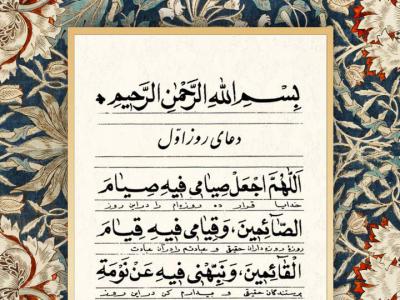 بِسْمِ اللهِ الرَّحْمٰنِ الرَّحِيمِ
دعای روز اوّل
اَللّٰهُمَّ اجْعَلْ صِيامي فيهِ صِيامَ
خدایا قرار ده روزه‌ام را در این روز
الصّآئِمينَ، وَقِيامي فيهِ قِيامَ
روزهٔ روزه‌داران حقیقی و عبادتم را در آن عبادت
الْقآئِمينَ، وَنَبِّهْني فيهِ عَنْ نَوْمَةِ
پرستندگان حقیقی و بیدارم کن در این روز